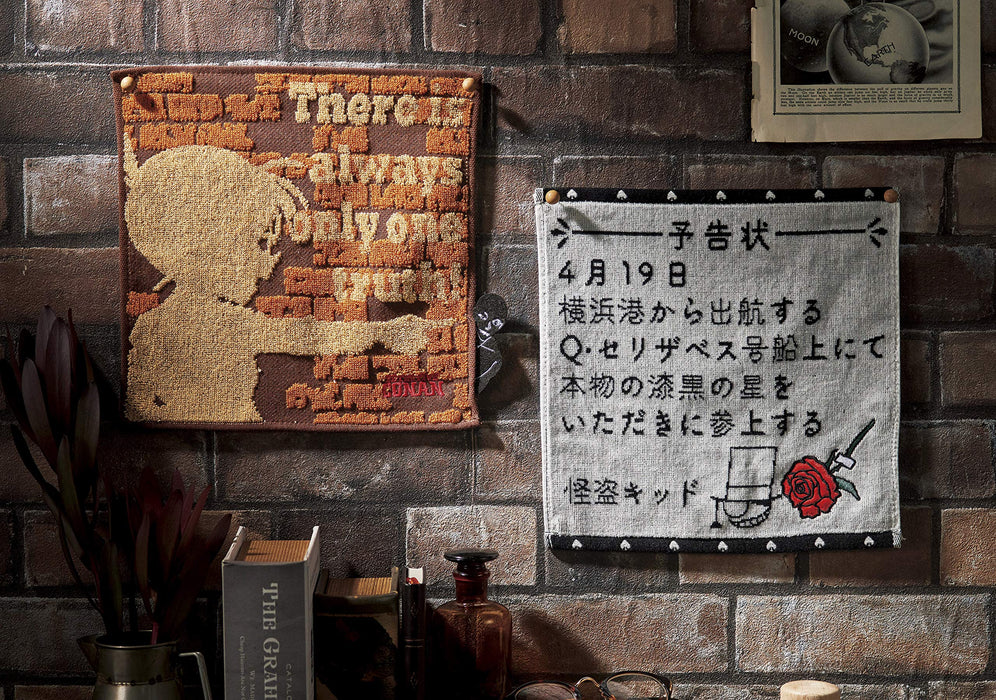 There is
always
only one
truth!
CONAN
予告状
4月19日
横浜港から出航する
Q・セリザベス号船上にて
本物の漆黒の星を
いただきに参上する
怪盗キッド
MOON
EARTH
THE GRAH
CATALOG